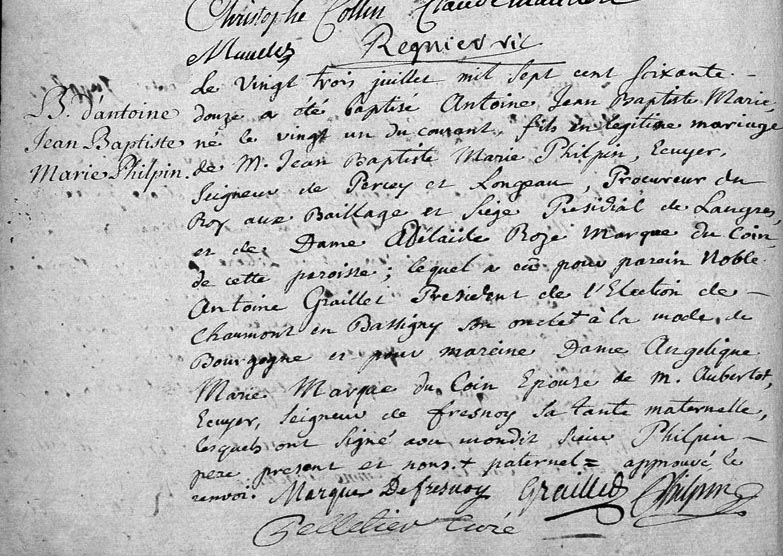 Christophe Collin Claude
Regnier vic
Le vingt trois juillet mil sept cent soixante
B. d'antoine
Jean Baptiste
Marie Philpin.
douze a eté baptisé Antoine Jean Baptiste Marie
né le vingt un du courant, fils en légitime mariage
de M. Jean Baptiste Marie Philpin, Ecuyer,
Seigneur de Percey et Longeau, Procureur du
Roy aux Bailliage et Siège Présidial de Langres,
et de Dame Adélaïde Roze Marque du Coin
de cette paroisse; lequel a eû pour parein Noble
Antoine Graillet President de l'Election de
Chaumont en Bassigny son oncle + à la mode de
Bourgogne et pour mareine Dame Angelique
Marie Marque du Coin Epouse de M. Aubertot,
Ecuyer, Seigneur de fresnoy sa tante maternelle,
lesquels ont signé avec mondit sieur Philpin
pere present et nous. + paternel = approuvé le
renvoi. Marque Defresnoy Graillet Philpin
Pelletier Curé